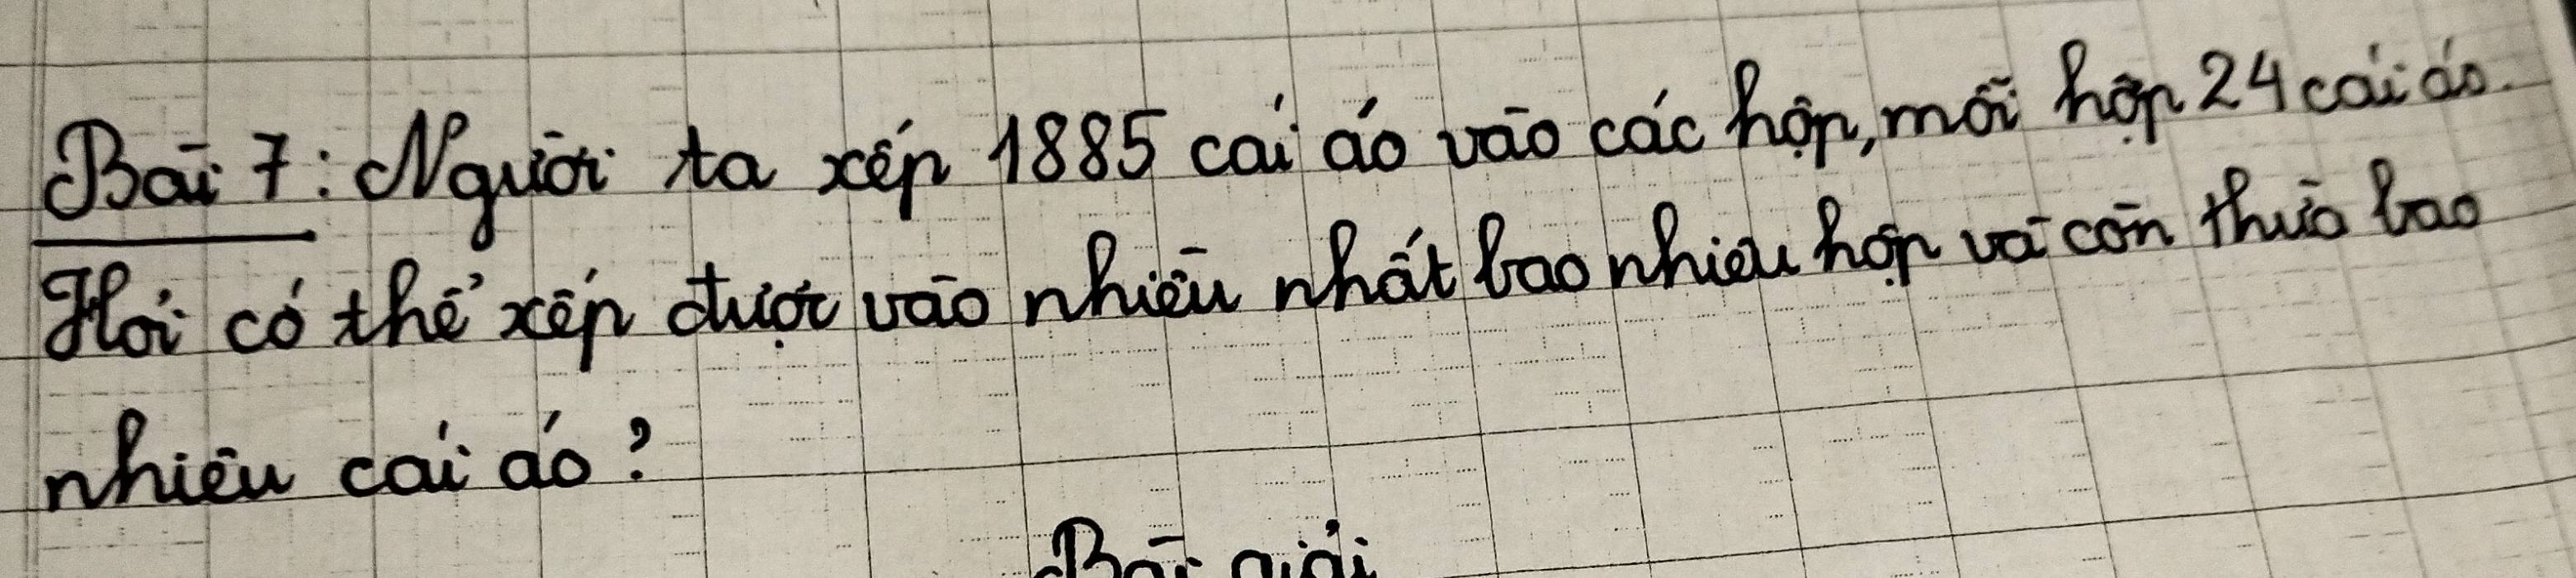 Bài 7: Người ta xếp 1885 cái áo vào các hộp, mỗi hộp 24 cái áo.
Hỏi có thể xếp được vào nhiều nhất bao nhiêu hộp và còn thừa bao
nhiêu cái áo?
Bài giải